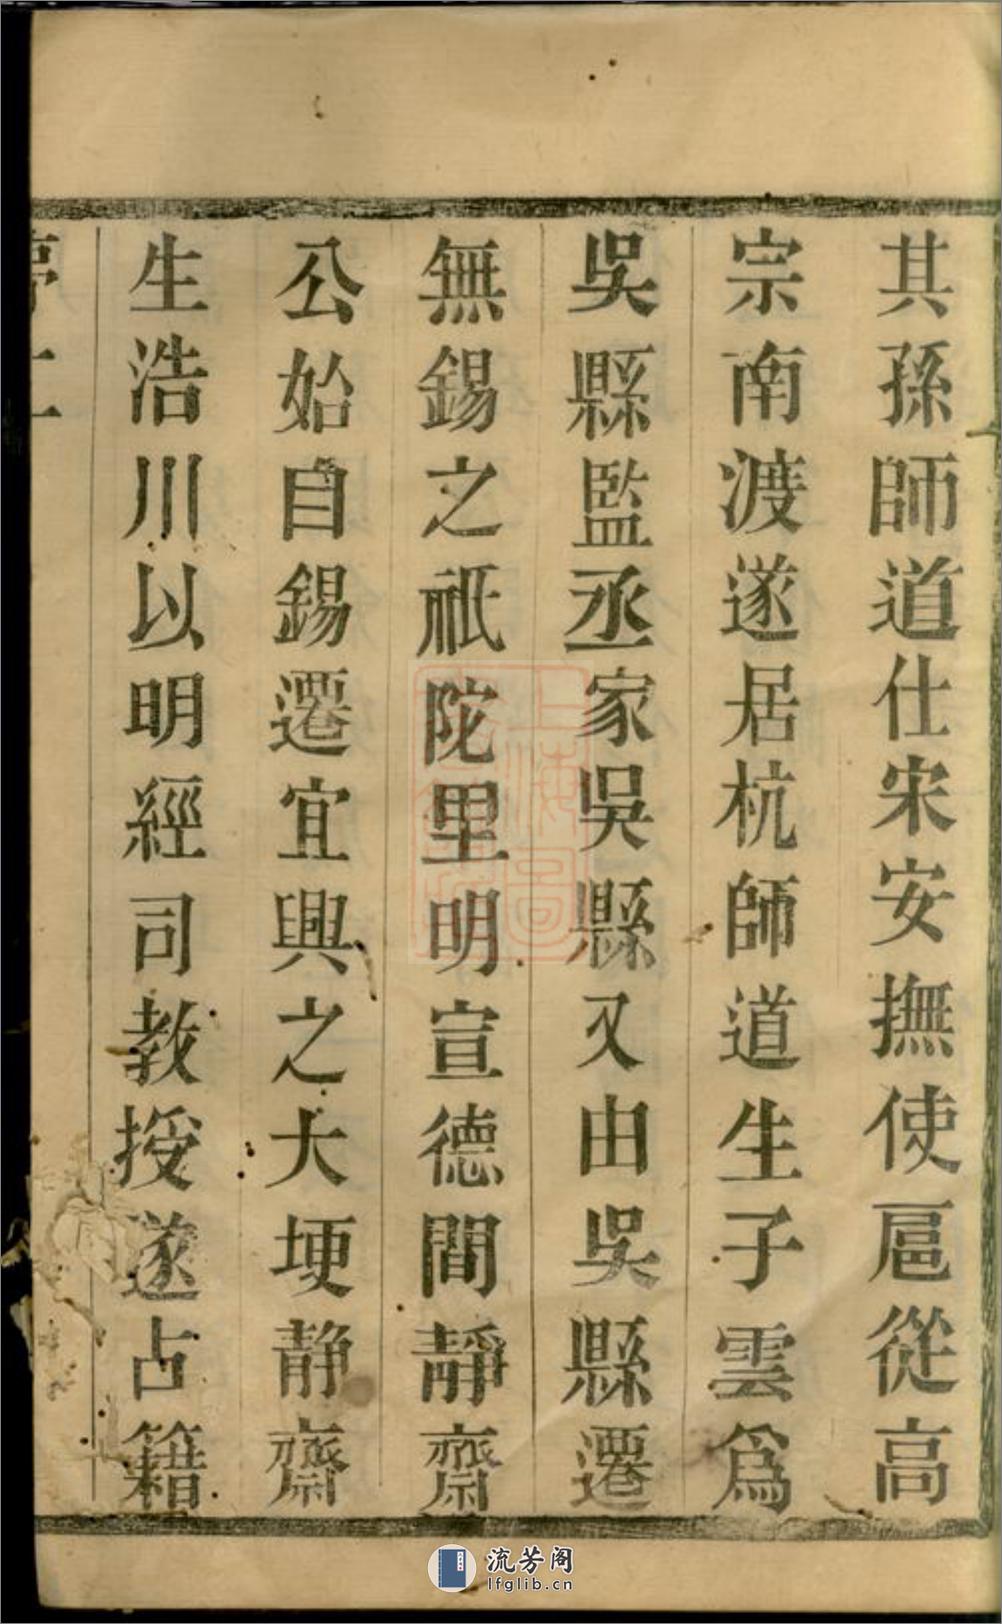 其孫師道仕宋安撫使扈從高
宗南渡遂居杭師道生子雲爲
吳縣監丞家吳縣又由吳縣遷
無錫之祇陀里明宣德間靜齋
公始自錫遷宜興之大埂静齋
生浩川以明經司教授遂占籍
流芳阁
lfglib.cn